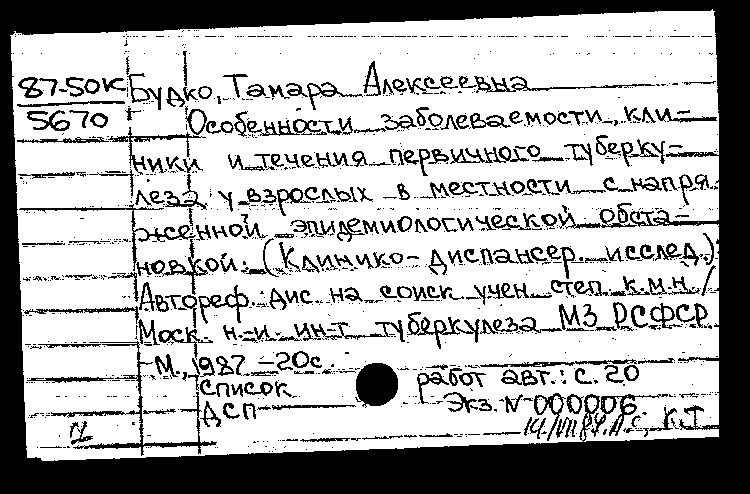 87-50К
5670
Будко, Тамара Алексеевна
Особенности заболеваемости, кли-
ники и течения первичного туберку-
леза у взрослых в местности с напря
женной эпидемиологической обста-
новкой: (Клинико-диспансер. исслед.):
Автореф. дис на соиск учен степ. к.м.н. /
Моск. н-и. ин-т туберкулеза МЗ РСФСР
-М., 1987 -20с.
Список работ авт.: с. 20
ДСП Экз. N 000006
14/VII 87. Л.С, К.Т